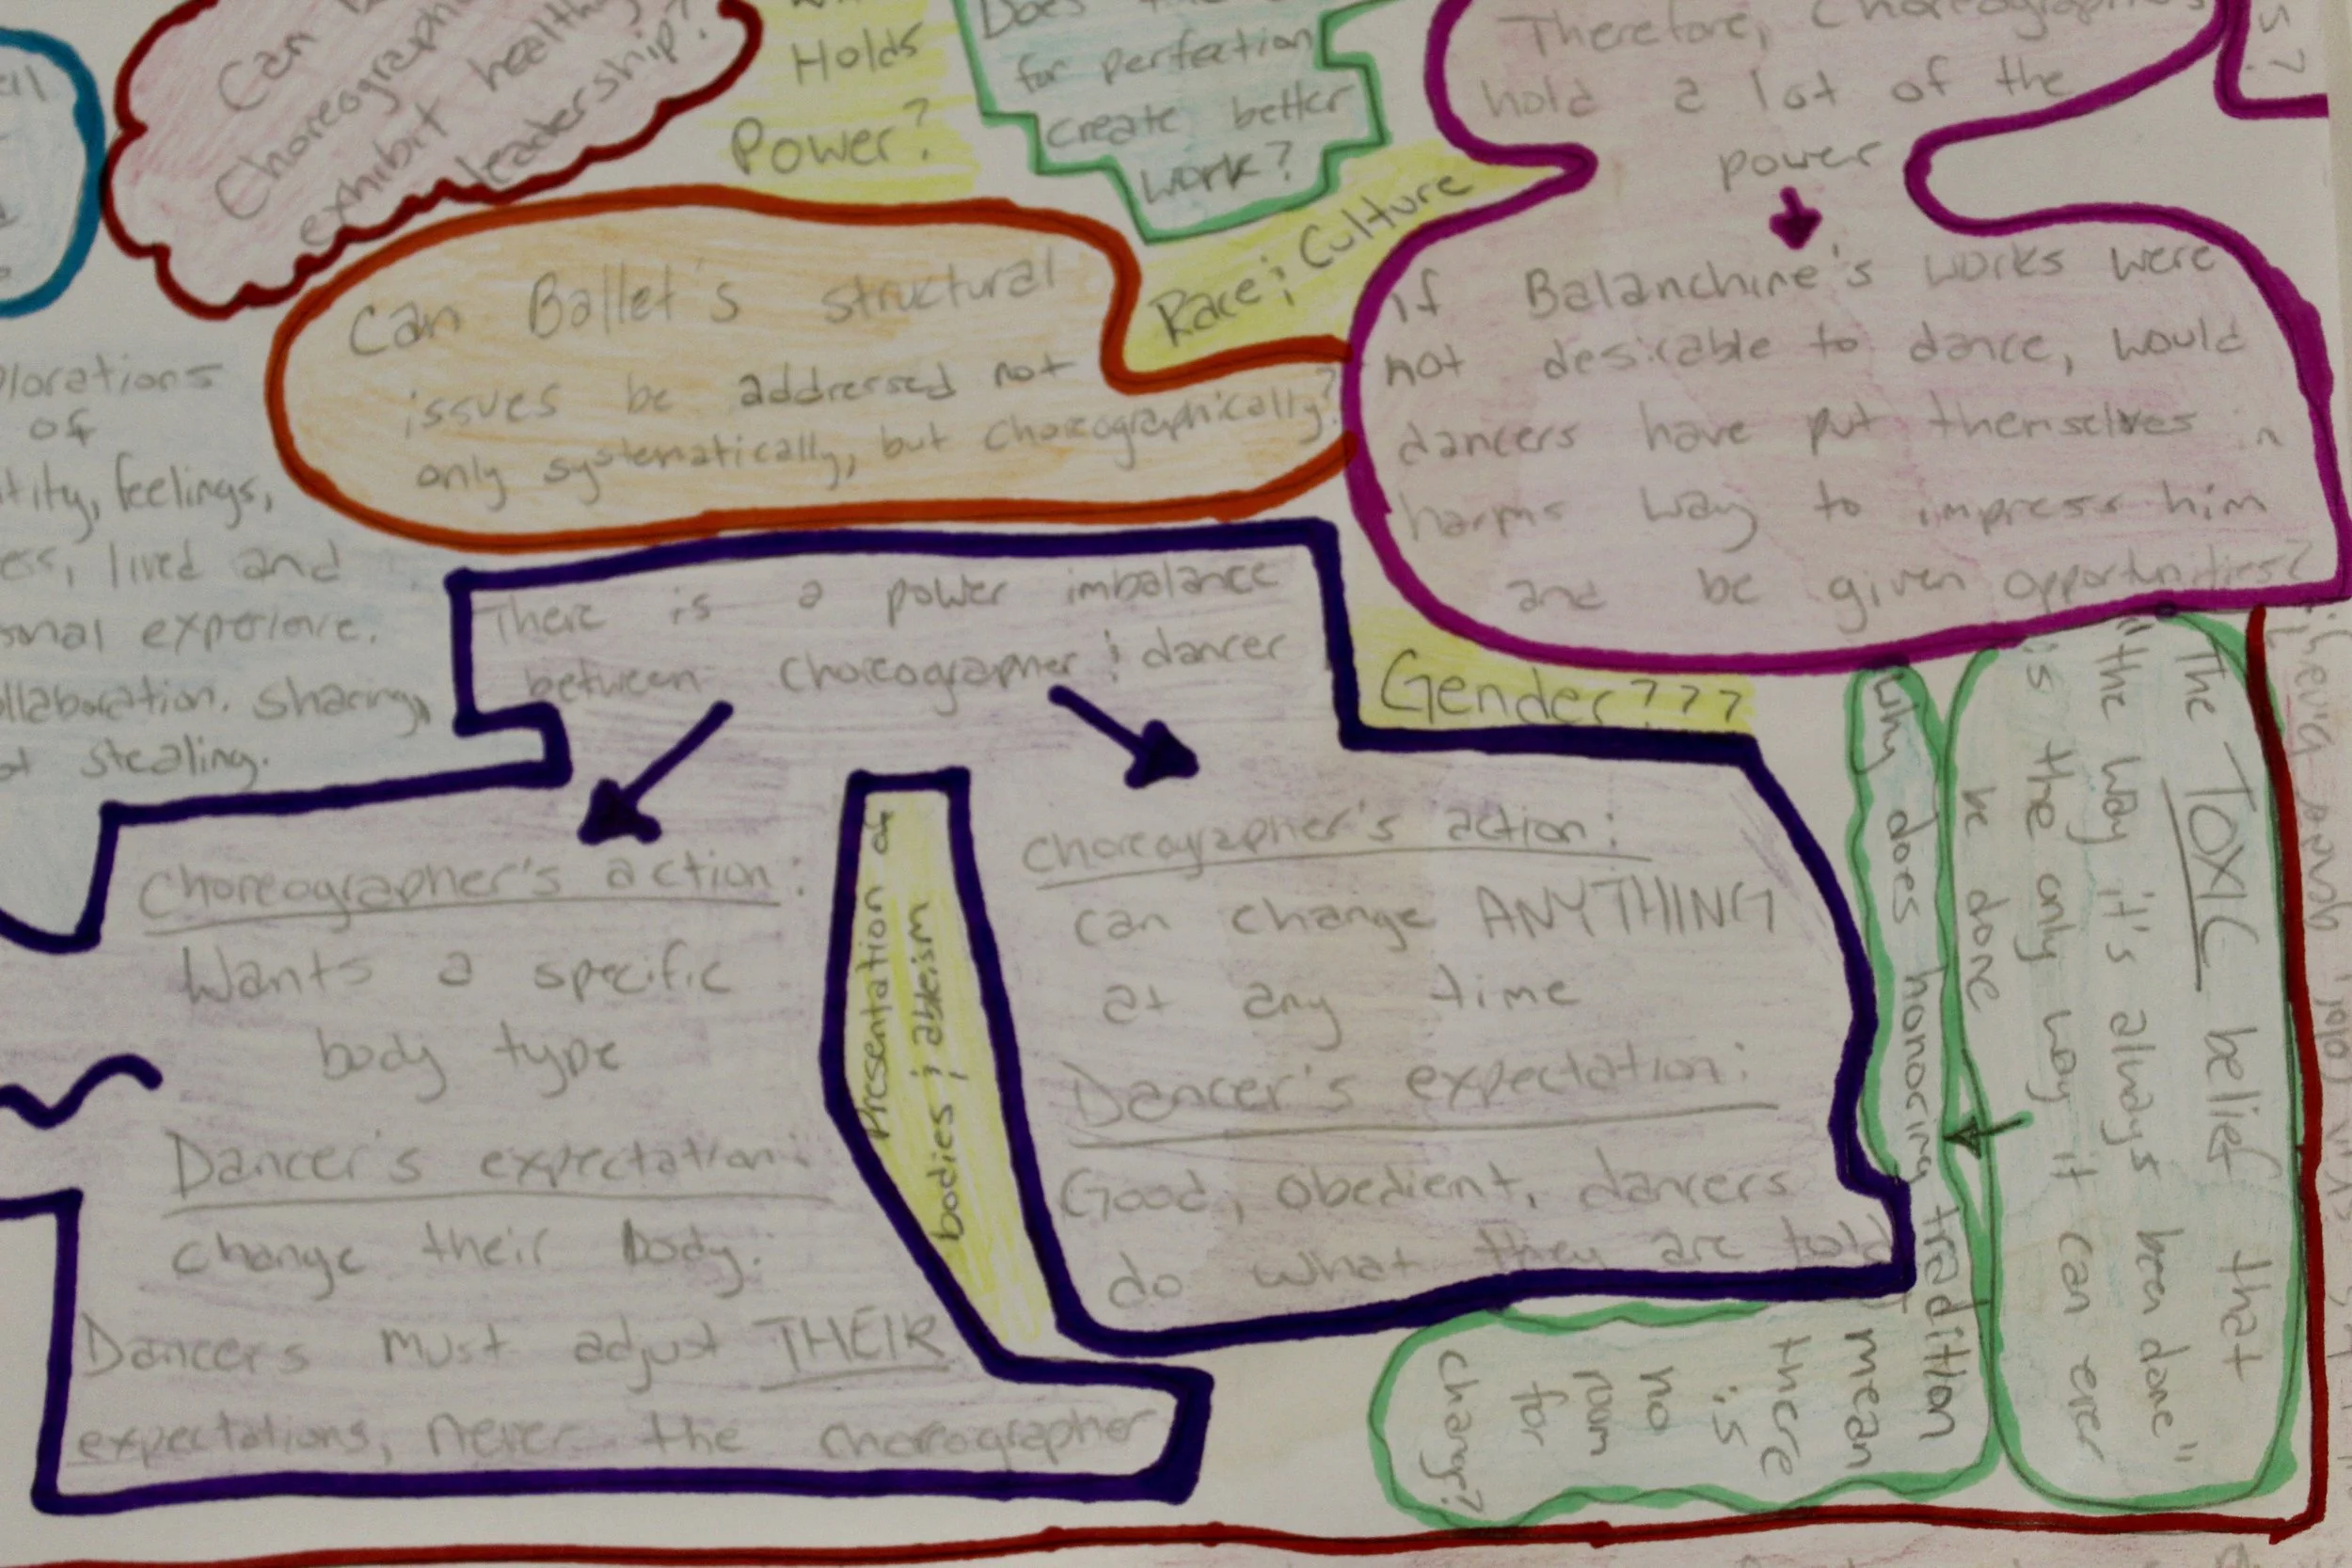 Can
Choreograph
exhibit healthy
leadership?
Holds
Power?
Does
for perfection
create better
work?
Therefore, Choreographers
hold a lot of the
power
If Balanchine's works were
not desirable to dance, would
dancers have put themselves in
harms way to impress him
and be given opportunities?
s?
Race & Culture
Can Ballet's structural
issues be addressed not
only systematically, but choreographically?
plorations
of
tity, feelings,
ess, lived and
sonal experience.
llaboration, sharing,
ot stealing.
There is a power imbalance
between choreographer & dancer
Gender???
Choreographer's action:
Wants a specific
body type
Dancer's expectation:
change their body.
Dancers must adjust THEIR
expectations, never the choreographer
Presentation of
bodies & ableism
Choreographer's action:
can change ANYTHING
at any time
Dancer's expectation:
Good, obedient, dancers
do what they are told
The TOXIC belief that
"the way it's always been done"
is the only way it can ever
be done
Why does honoring tradition
mean
there
is
no
room
for
change?